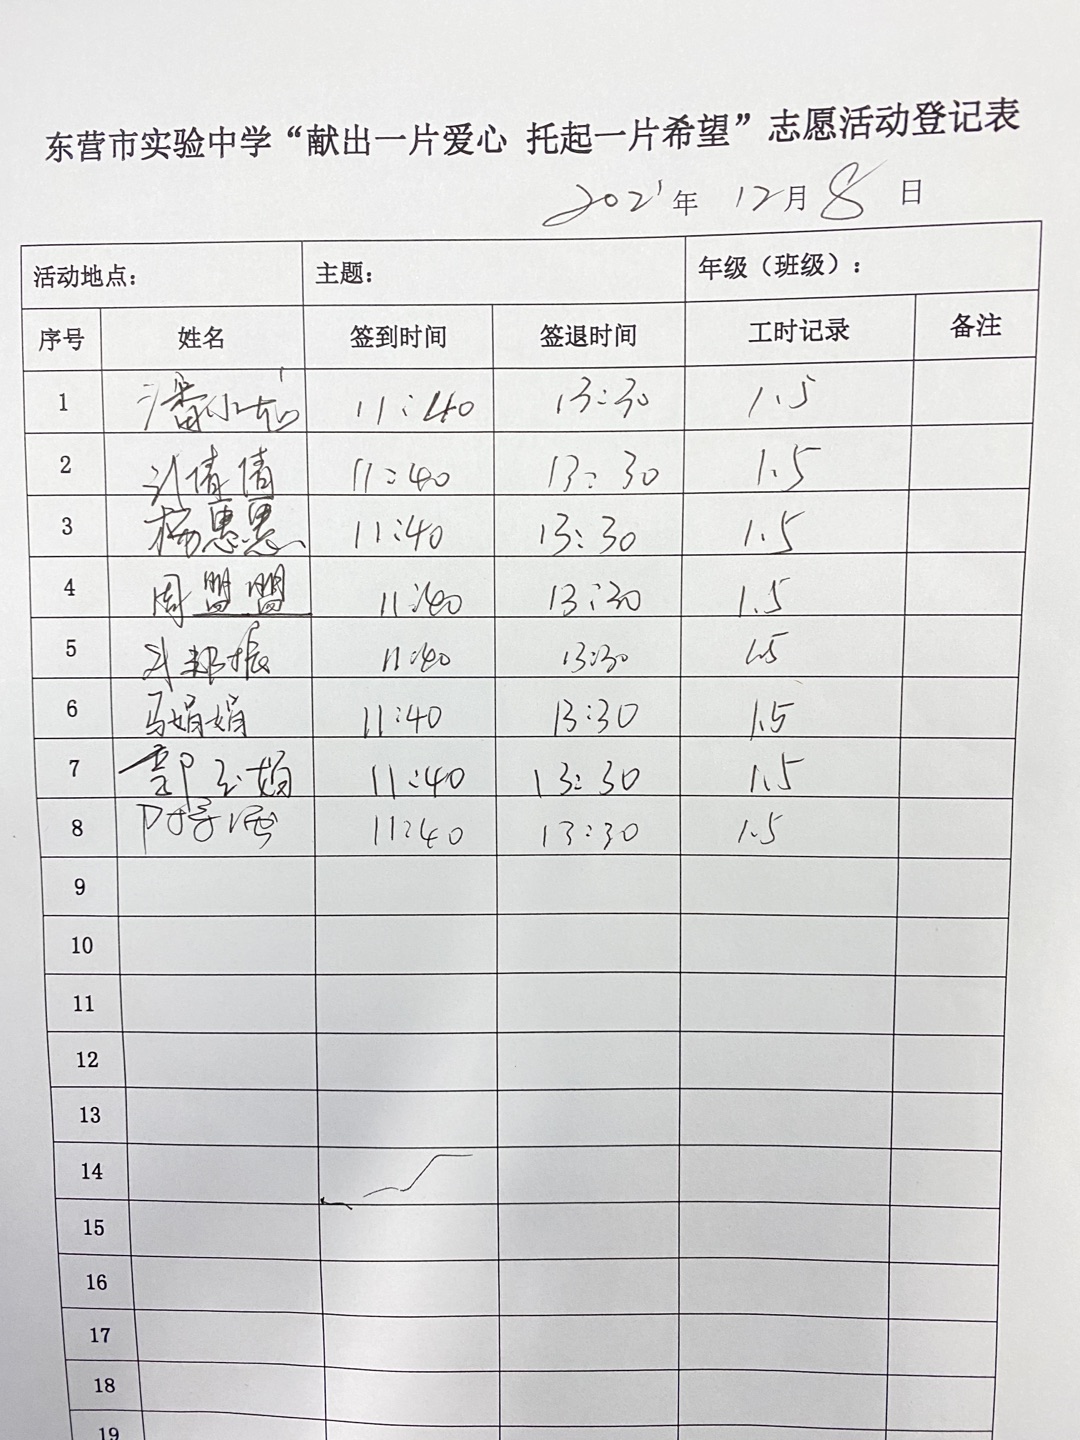 东营市实验中学“献出一片爱心 托起一片希望”志愿活动登记表
2021年 12月 8日
活动地点: 主题: 年级（班级）:
序号 姓名 签到时间 签退时间 工时记录 备注
1 潘 11:40 13:30 1.5
2 刘倩倩 11:40 13:30 1.5
3 杨惠惠 11:40 13:30 1.5
4 周盟盟 11:40 13:30 1.5
5 11:40 13:30 1.5
6 马娟娟 11:40 13:30 1.5
7 郭玉娟 11:40 13:30 1.5
8 11:40 13:30 1.5
9
10
11
12
13
14
15
16
17
18
19